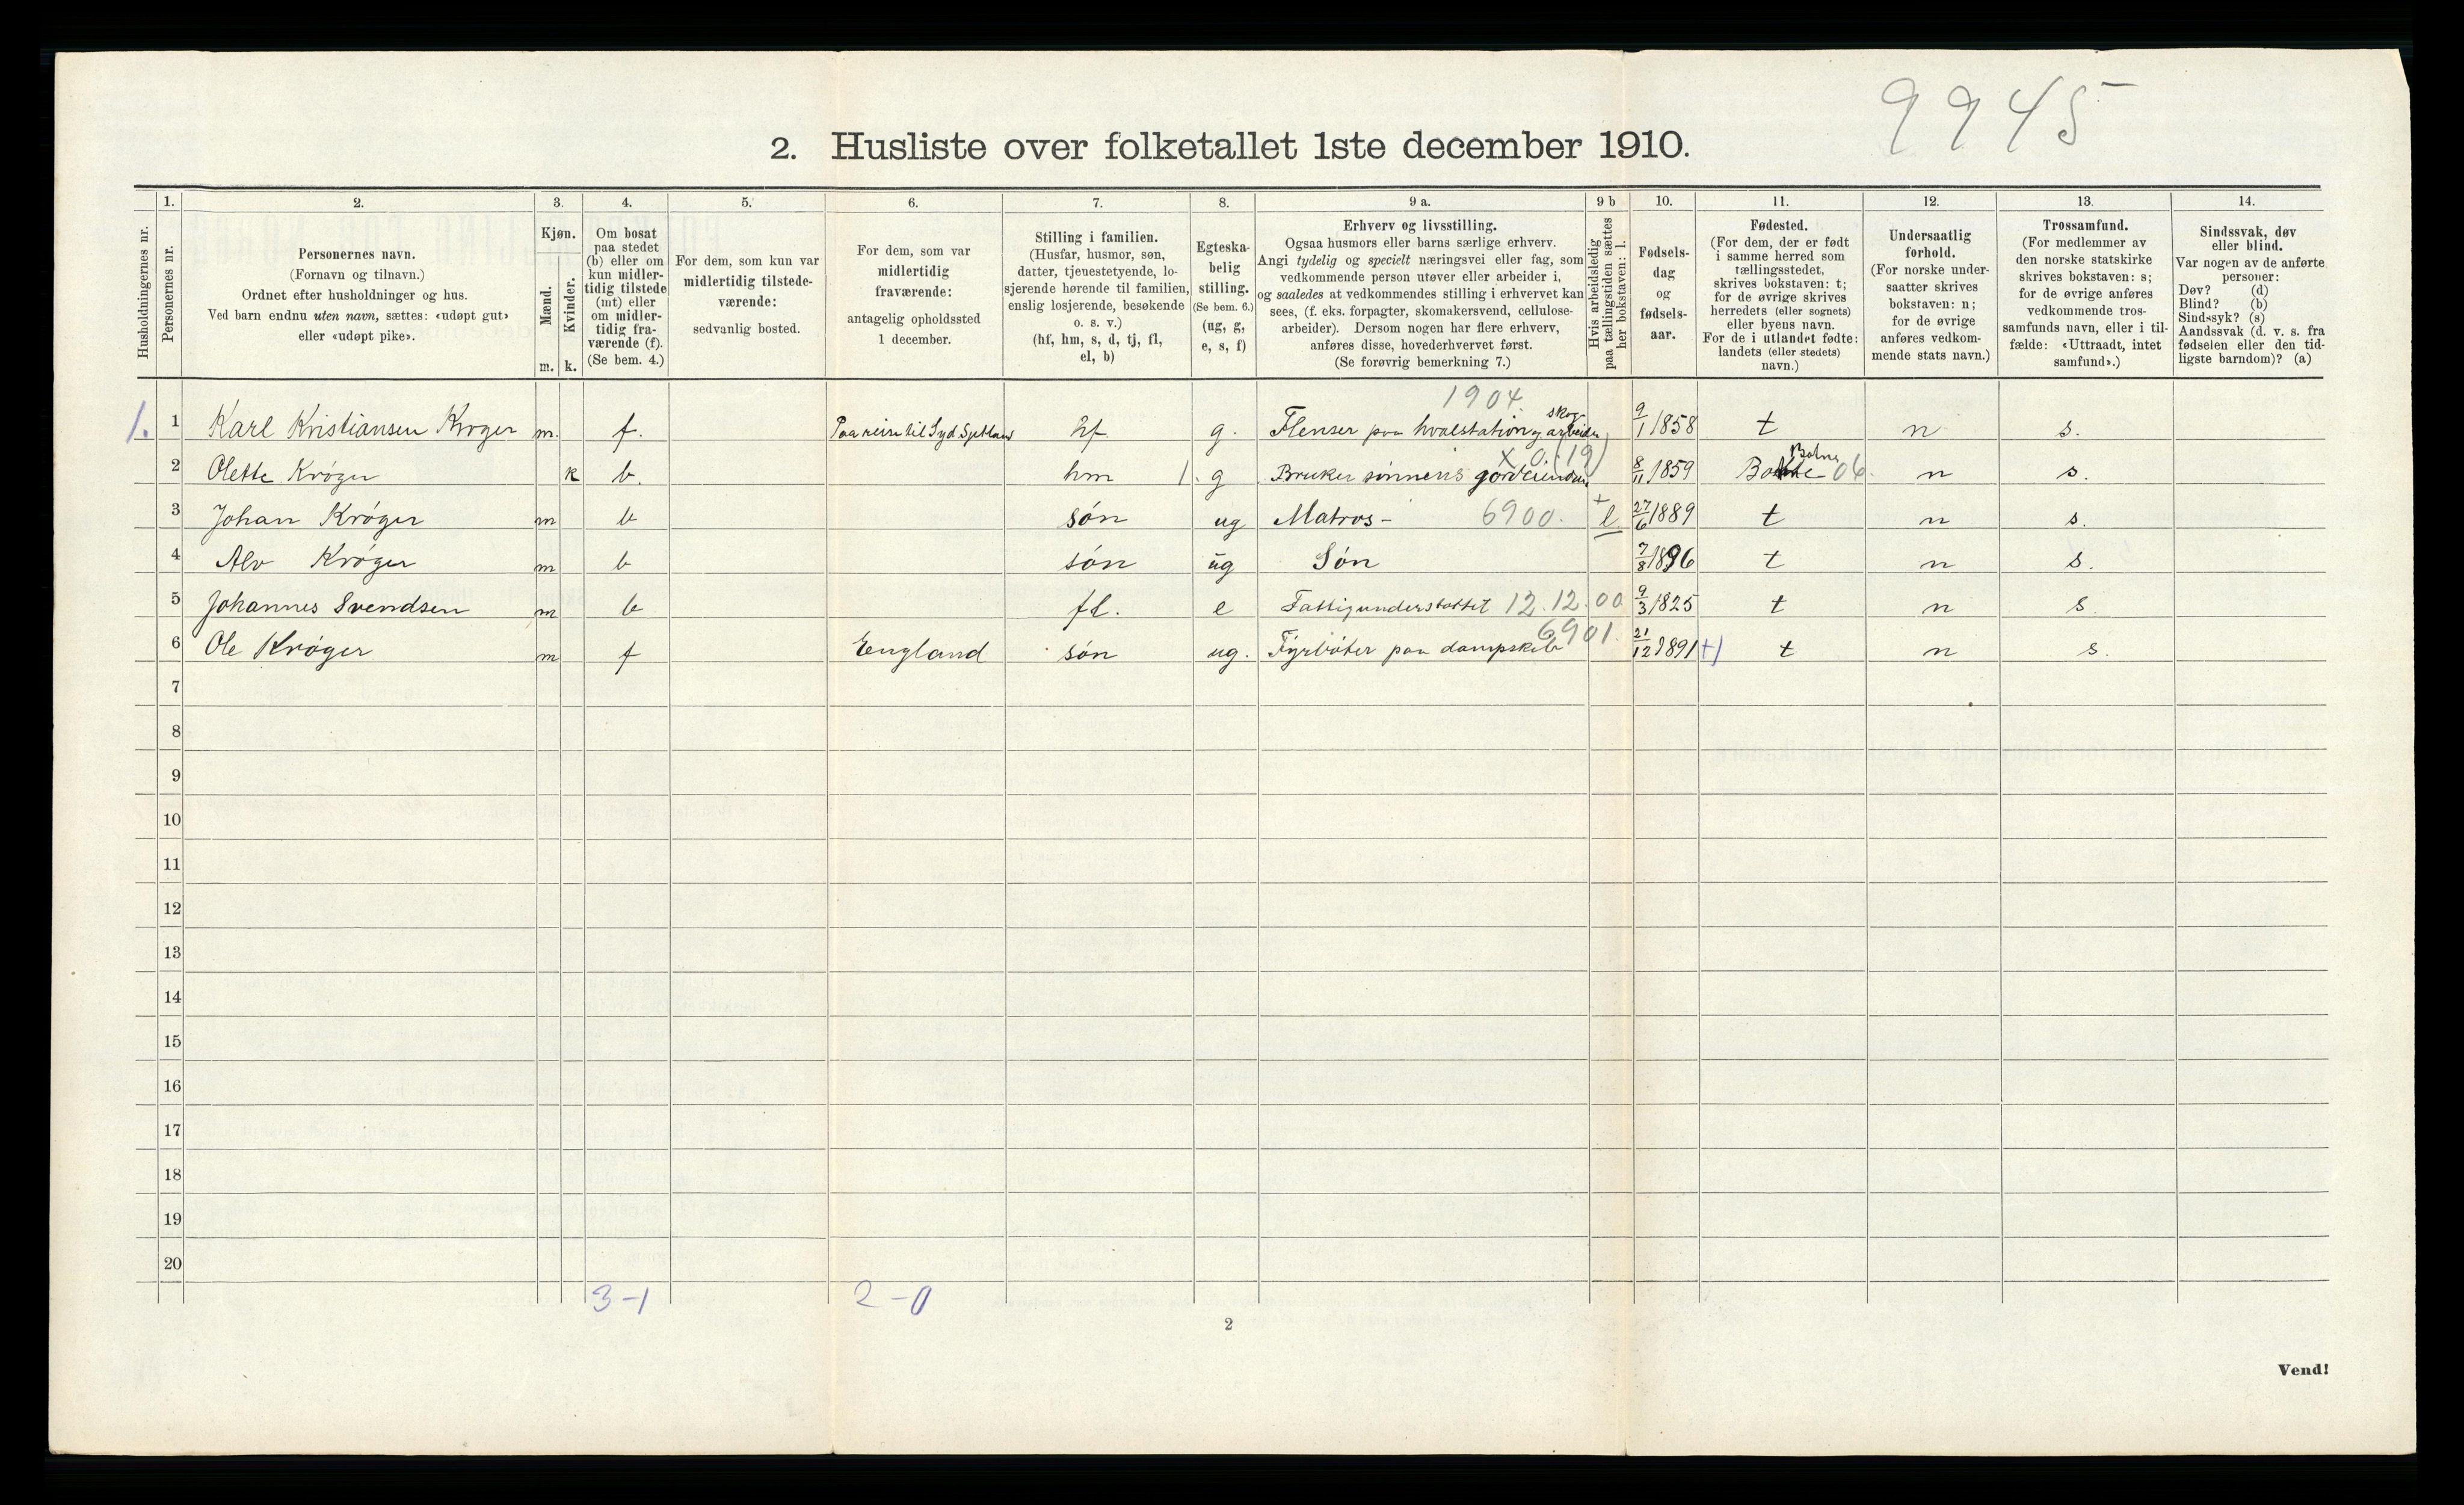 9945
2. Husliste over folketallet 1ste december 1910.
1. 2. 3. 4. 5. 6. 7. 8. 9 a. 9 b 10. 11. 12. 13. 14.
Husholdningernes nr.
Personernes nr.
Personernes navn.
(Fornavn og tilnavn.)
Ordnet efter husholdninger og hus.
Ved barn endnu uten navn, sættes: «udøpt gut»
eller «udøpt pike».
Kjøn.
Mænd.
Kvinder.
m. k.
Om bosat
paa stedet
(b) eller om
kun midler-
tidig tilstede
(mt) eller
om midler-
tidig fra-
værende (f).
(Se bem. 4.)
For dem, som kun var
midlertidig tilstede-
værende:
sedvanlig bosted.
For dem, som var
midlertidig
fraværende:
antagelig opholdssted
1 december.
Stilling i familien.
(Husfar, husmor, søn,
datter, tjenestetyende, lo-
sjerende hørende til familien,
enslig losjerende, besøkende
o. s. v.)
(hf, hm, s, d, tj, fl,
el, b)
Egteska-
belig
stilling.
(Se bem. 6.)
(ug, g,
e, s, f)
Erhverv og livsstilling.
Ogsaa husmors eller barns særlige erhverv.
Angi tydelig og specielt næringsvei eller fag, som
vedkommende person utøver eller arbeider i,
og saaledes at vedkommendes stilling i erhvervet kan
sees, (f. eks. forpagter, skomakersvend, cellulose-
arbeider). Dersom nogen har flere erhverv,
anføres disse, hovederhvervet først.
(Se forøvrig bemerkning 7.)
Hvis arbeidsledig
paa tællingstiden sættes
her bokstaven: l.
Fødsels-
dag
og
fødsels-
aar.
Fødested.
(For dem, der er født
i samme herred som
tællingsstedet,
skrives bokstaven: t;
for de øvrige skrives
herredets (eller sognets)
eller byens navn.
For de i utlandet fødte:
landets (eller stedets)
navn.)
Undersaatlig
forhold.
(For norske under-
saatter skrives
bokstaven: n;
for de øvrige
anføres vedkom-
mende stats navn.)
Trossamfund.
(For medlemmer av
den norske statskirke
skrives bokstaven: s;
for de øvrige anføres
vedkommende tros-
samfunds navn, eller i til-
fælde: «Uttraadt, intet
samfund».)
Sindssvak, døv
eller blind.
Var nogen av de anførte
personer:
Døv? (d)
Blind? (b)
Sindssyk? (s)
Aandssvak (d. v. s. fra
fødselen eller den tid-
ligste barndom)? (a)
1904
1. 1 Karl Kristiansen Krøger m. f. Paa reise til Syd Sjetland hf g. Flenser paa hvalstation og skog arbeider 9/1 1858 t n s.
X 0.(19)
2 Olette Krøger k b. hm 1. g Bruker sønnens gårdeiendom 8/11 1859 Botne 06. n s.
3 Johan Krøger m b søn ug Matros - 6900. + l 27/6 1889 t n s.
4 Alv Krøger m b søn ug Søn 7/8 1896 t n s.
5 Johannes Svendsen m b fl. e Fattigunderstøttet 12.12.00 9/3 1825 t n s.
6 Ole Krøger m f England søn ug. Fyrbøter paa dampskib 6901. 21/12 1891 +) t n s.
7
8
9
10
11
12
13
14
15
16
17
18
19
20
3-1 2-0
2
Vend!